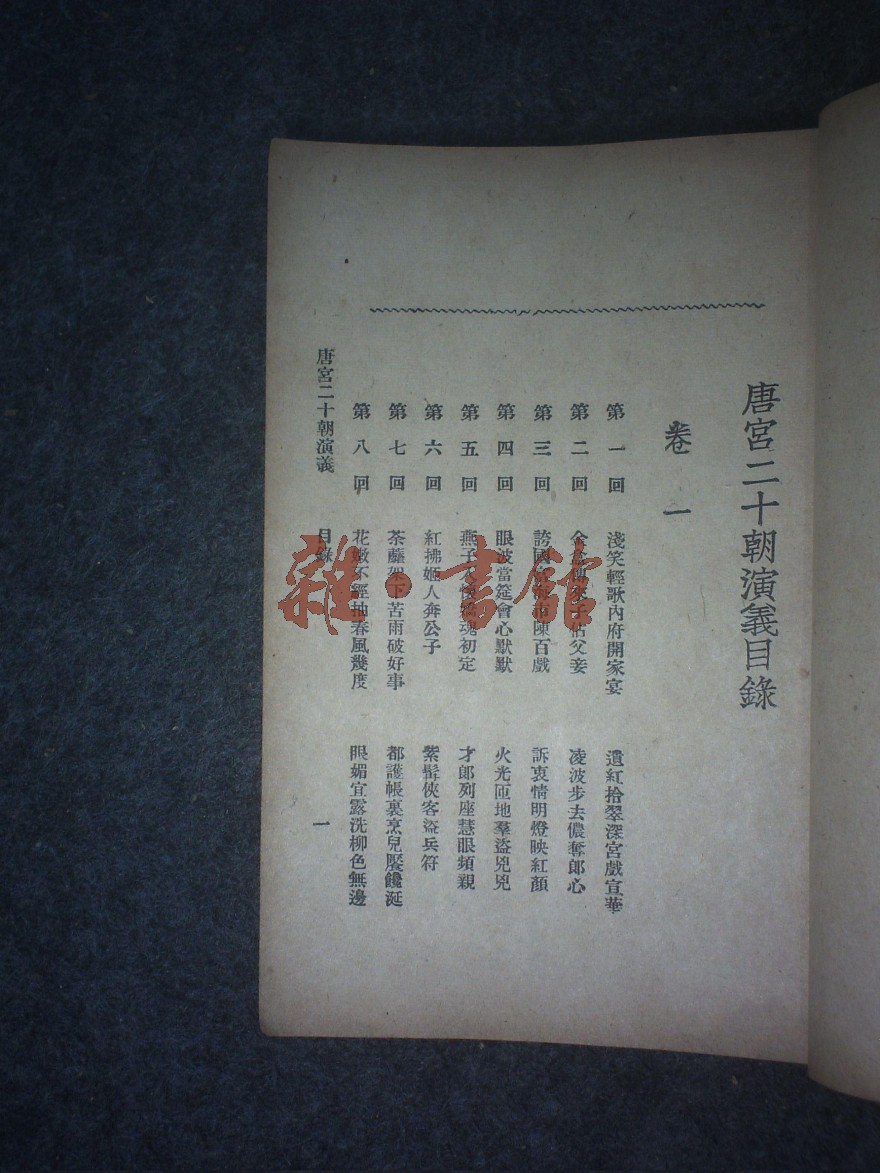 唐宮二十朝演義目錄
卷一
第一回 淺笑輕歌內府開家宴 遺紅拾翠深宮戲宣華
第二回 傳來子父妾 凌波步去儂奪郎心
第三回 誇國富海市陳百戲 訴衷情明燈映紅顏
第四回 眼波當筵會心默默 火光匝地羣盜兇兇
第五回 燕子入懷魂初定 才郎列座慧眼頻親
第六回 紅拂姬人奔公子 紫髯俠客盜兵符
第七回 荼蘼架下苦雨破好事 都護帳裏烹兒饜饞涎
第八回 花嫩不經抽春風幾度 眼媚宜露洗柳色無邊
唐宮二十朝演義 目錄 一
雜·書館